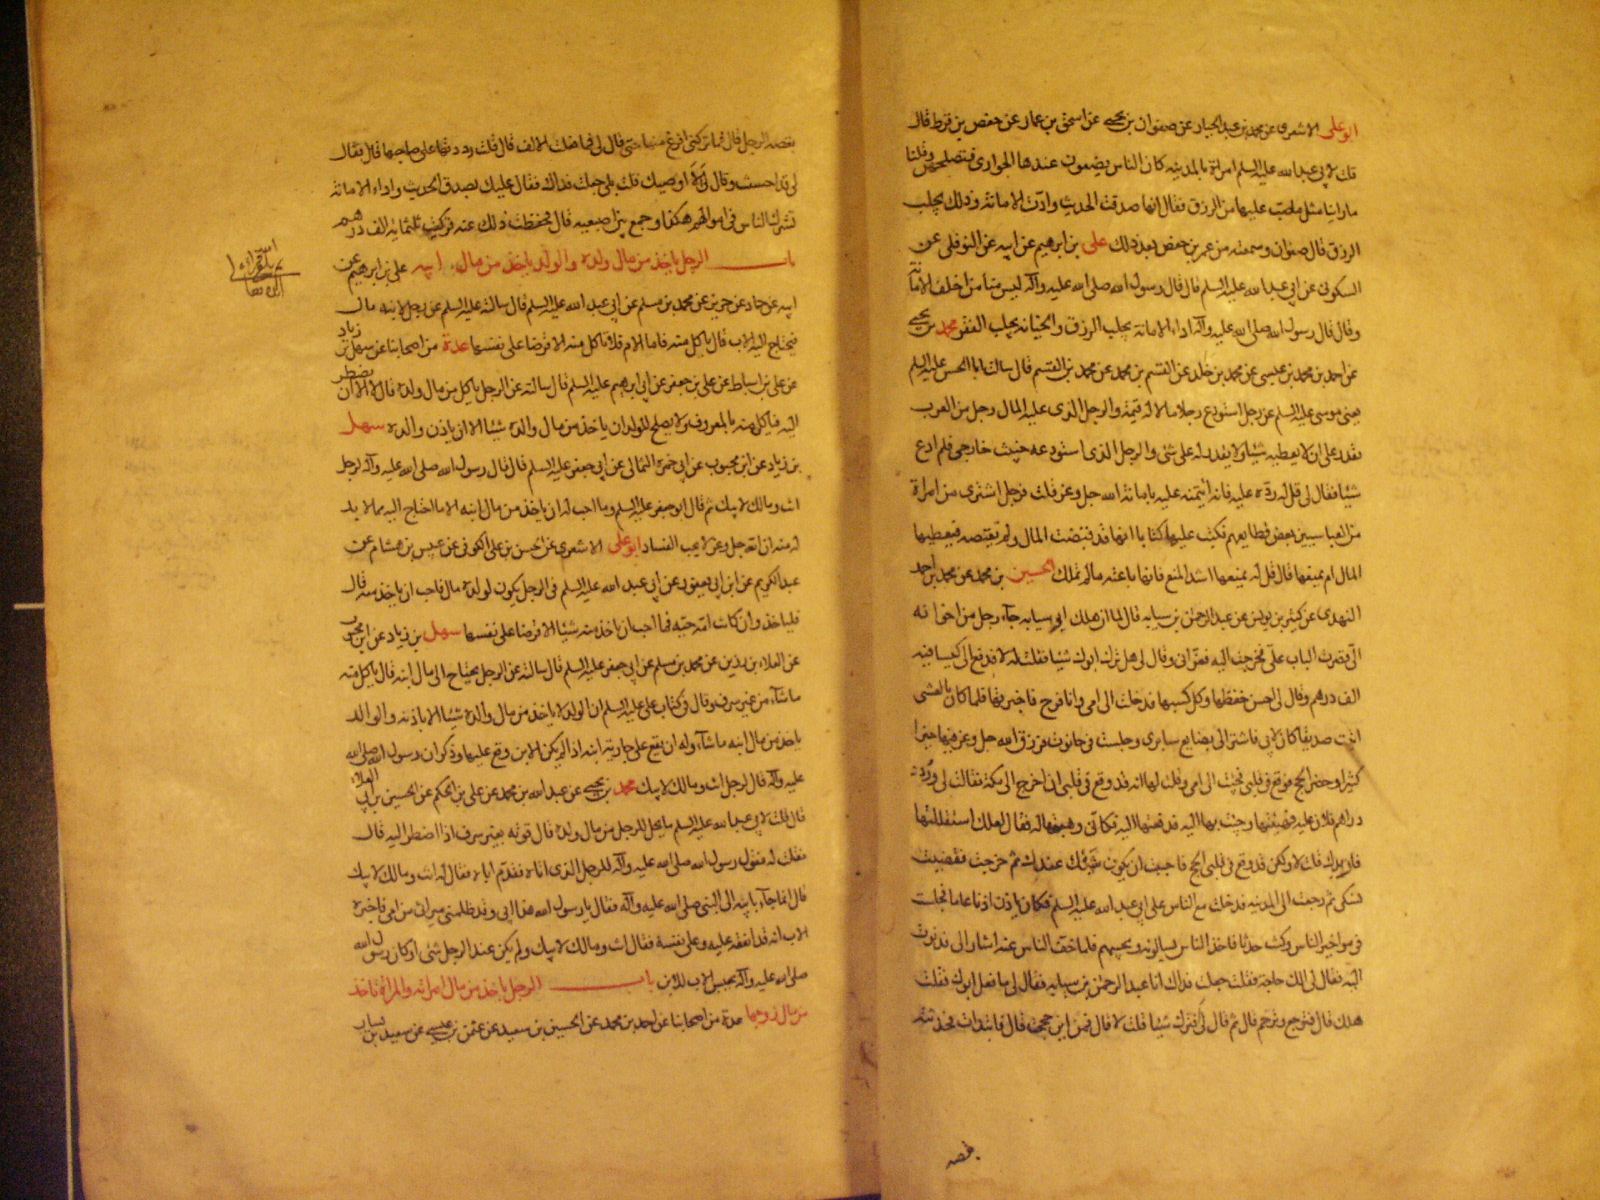 ابوعلى الاشعرى عن محمد بن عبد الجبار عن صفوان بن يحيى عن اسحق بن عمار عن حفص بن قرط قال
قلت لابى عبد الله عليه السلم امراة بالمدينه كان الناس يضعون عندها الجوارى فتصلحهن وقلنا
ما راينا مثل ما صب عليها من الرزق فقال انها صدقت الحديث وادت الامانة وذلك يجلب
الرزق قال صفوان وسمعته من حفص بعد ذلك على بن ابرهيم عن ابيه عن النوفلى عن
السكونى عن ابى عبد الله عليه السلم قال قال رسول الله صلى الله عليه وآله ليس منا من اخلف الامانة
وقال قال رسول الله صلى الله عليه وآله اداء الامانة يجلب الرزق والخيانة يجلب الفقر محمد بن يحيى
عن احمد بن محمد بن عيسى عن محمد بن خالد عن القسم بن محمد عن محمد بن القسم قال سالت ابا الحسن عليه السلم
يعنى موسى عليه السلم عن رجل استودع رجلا مالا له قيمة والرجل الذى عليه المال رجل من العرب
يقدر على ان لا يعطيه شيئا ولا يقدر له على شئ والرجل الذى استودعه خبيث خارجى فلم ادع
شيئا فقال لى قل له رده عليه فانه ائتمنه عليه بامانة الله جل وعز قلت فرجل اشترى من امراة
من العباسيين بعض قطايعهم فكتب عليها كتابا انها قد قبضت المال ولم تقبضه فيعطيها
المال ام يمنعها قال قل له يمنعها اشد المنع فانها باعته مالم تملك الحسين بن محمد عن محمد بن احمد
النهدى عن كثير بن يونس عن عبد الرحمن بن سيابه قال لما ان هلك ابى سيابه جاء رجل من اخوانه
الىّ فضرب الباب علىّ فخرجت اليه فعزّانى وقال لى هل ترك ابوك شيئا فقلت له لا فدفع الى كيسا فيه
الف درهم وقال لى احسن حفظها وكل كسبها فدخلت الى امى وانا فرح فاخبرتها فلما كان بالعشى
اتيت صديقا كان لابى فاشترى لى بضايع سابرى وجلست فى حانوت فرزق الله جل وعز فيها خيرا
كثيرا وحضر الحج فوقع فى قلبى فجئت الى امى وقلت لها انه قد وقع فى قلبى ان اخرج الى مكة فقالت لى فردّ
دراهم فلان عليه فهيئتها وجئت بها اليه فدفعتها اليه فكانى وهبتها له فقال لعلك استقللتها
فازيدك قلت لا ولكن قد وقع فى قلبى الحج فاحببت ان يكون شيئك عندك ثم خرجت فقضيت
نسكى ثم رجعت الى المدينه فدخلت مع الناس على ابى عبد الله عليه السلم فكان ياذن اذنا عاما فجلست
فى مواخير الناس وكنت حدثا فاخذ الناس يسالونه ويجيبهم فلما خف الناس عنه اشار الى فدنوت
اليه فقال لى الك حاجة فقلت جعلت فداك انا عبد الرحمن بن سيابه فقال لى ما فعل ابوك فقلت
هلك قال فتوجع وترحم قال ثم قال لى فترك شيئا قلت لا قال فمن اين حججت قال فابتدات فحدثته
بقصه
بقصه الرجل قال فما تركنى افرغ منها حتى قال لى فما فعلت الالف قال قلت رددتها على صاحبها قال فقال
لى قد احسنت وقال لى الا اوصيك قلت بلى جعلت فداك فقال عليك بصدق الحديث واداء الامانة
تشرك الناس فى اموالهم هكذا وجمع بين اصبعيه قال فحفظت ذلك عنه فزكيت ثلثماية الف درهم
باب الرجل ياخذ من مال ولده والولد ياخذ من مال ابيه على بن ابرهيم عن
ابيه عن حماد عن حريز عن محمد بن مسلم عن ابى عبد الله عليه السلم قال سالته عليه السلم عن رجل لابنه مال
فيحتاج اليه الاب قال ياكل منه فاما الام فلا تاكل منه الا قرضا على نفسها عدة من اصحابنا عن سهل بن زياد
عن على بن اسباط عن على بن جعفر عن ابى ابرهيم عليه السلم قال سالته عن الرجل ياكل من مال ولده قال لا الا ان يضطر
اليه فياكل منه بالمعروف ولا يصلح للولد ان ياخذ من مال والده شيئا الا ان ياذن والده سهل
بن زياد عن ابن محبوب عن ابى حمزة الثمالى عن ابى جعفر عليه السلم قال قال رسول الله صلى الله عليه وآله لرجل
انت ومالك لابيك ثم قال ابو جعفر عليه السلم وما احب له ان ياخذ من مال ابنه الا ما احتاج اليه مما لا بد
له منه ان الله عز وجل لا يحب الفساد ابوعلى الاشعرى عن الحسن بن على الكوفى عن عبيس بن هشام عن
عبد الكريم عن ابن ابى يعفور عن ابى عبد الله عليه السلم فى الرجل يكون لولده مال فاحب ان ياخذ منه قال
فلياخذ وان كانت امه حية فما احب ان ياخذ منه شيئا الا قرضا على نفسها سهل بن زياد عن ابن محبوب
عن العلاء بن رزين عن محمد بن مسلم عن ابى جعفر عليه السلم قال سالته عن الرجل يحتاج الى مال ابنه قال ياكل منه
ما شاء من غير سرف وقال وفى كتاب على عليه السلم ان الولد لا ياخذ من مال والده شيئا الا باذنه والوالد
ياخذ من مال ابنه ما شاء وله ان يقع على جارية ابنه اذا لم يكن الابن وقع عليها وذكر ان رسول الله صلى الله
عليه وآله قال لرجل انت ومالك لابيك محمد بن يحيى عن عبد الله بن محمد عن على بن الحكم عن الحسين بن ابى العلاء
قال قلت لابى عبد الله عليه السلم ما يحل للرجل من مال ولده قال قوته بغير سرف اذا اضطر اليه قال
فقلت له فقول رسول الله صلى الله عليه وآله للرجل الذى اتاه فقدم اباه فقال له انت ومالك لابيك
قال انما جاء بابيه الى النبى صلى الله عليه وآله فقال يا رسول الله هذا ابى وقد ظلمنى ميراثى من امى فاخبره
الاب انه قد انفقه عليه وعلى نفسه فقال انت ومالك لابيك ولم يكن عند الرجل شئ او كان رسول الله
صلى الله عليه وآله يحبس الاب للابن باب الرجل ياخذ من مال امراته والمراة تاخذ
من مال زوجها عدة من اصحابنا عن احمد بن محمد عن الحسين بن سعيد عن عثمن بن عيسى عن سعيد بن يسار